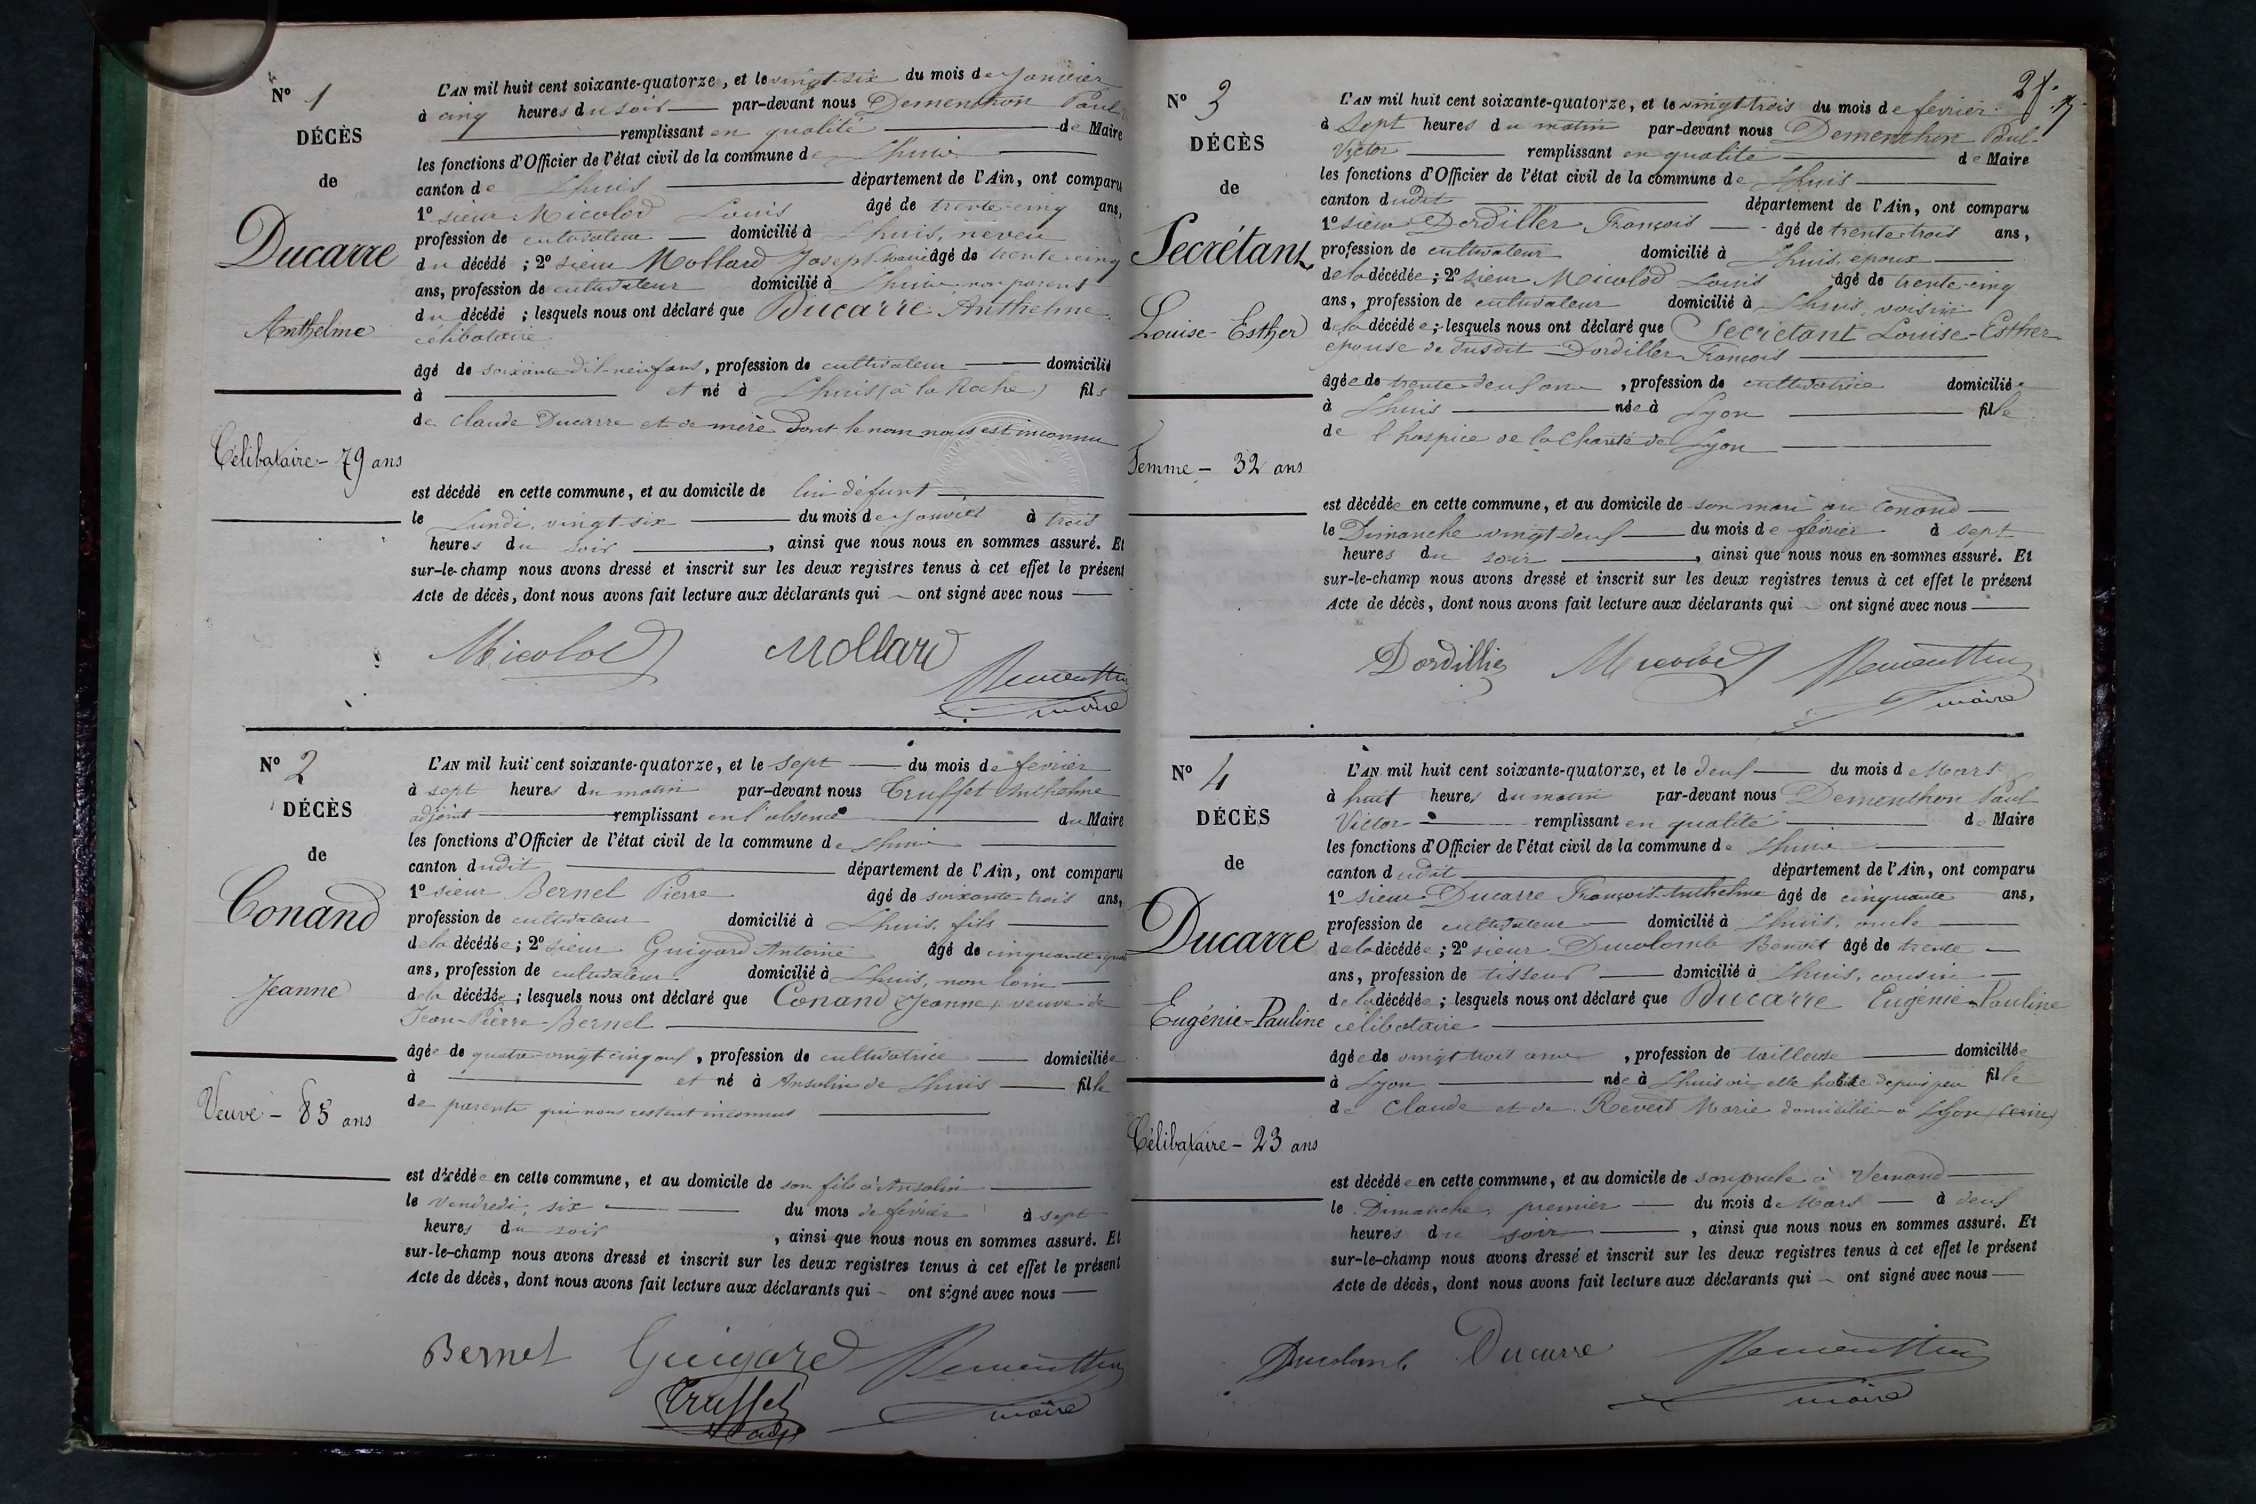 N° 1
DÉCÈS
de
Ducarre
Anthelme
Célibataire - 79 ans
L'AN mil huit cent soixante-quatorze, et le vingt-six du mois de janvier
à cinq heures du soir par-devant nous Dementhon Paul
remplissant en qualité de Maire
les fonctions d'Officier de l'état civil de la commune de Lhuis
canton de Lhuis département de l'Ain, ont comparu
1° sieur Micolod Louis âgé de trente-cinq ans,
profession de cultivateur domicilié à Lhuis, neveu
du décédé ; 2° sieur Mollard Joseph âgé de trente-cinq
ans, profession de cultivateur domicilié à Lhuis non parent
du décédé ; lesquels nous ont déclaré que Ducarre Anthelme
célibataire
âgé de soixante-dix-neuf ans, profession de cultivateur domicilié
à et né à Lhuis (à la Roche) fils
de Claude Ducarre et de mère dont le nom nous est inconnu
est décédé en cette commune, et au domicile de lui défunt
le Lundi, vingt-six du mois de janvier à trois
heures du soir, ainsi que nous nous en sommes assuré. Et
sur-le-champ nous avons dressé et inscrit sur les deux registres tenus à cet effet le présent
Acte de décès, dont nous avons fait lecture aux déclarants qui ont signé avec nous
Micolod Mollard Dementhon
maire
N° 2
DÉCÈS
de
Conand
Jeanne
Veuve - 85 ans
L'AN mil huit cent soixante-quatorze, et le sept du mois de février
à sept heures du matin par-devant nous Truffet Anthelme
adjoint remplissant en l'absence du Maire
les fonctions d'Officier de l'état civil de la commune de Lhuis
canton dudit département de l'Ain, ont comparu
1° sieur Bernet Pierre âgé de soixante-trois ans,
profession de cultivateur domicilié à Lhuis, fils
de la décédée ; 2° sieur Guigard Antoine âgé de cinquante-quatre
ans, profession de cultivateur domicilié à Lhuis, non
de la décédée ; lesquels nous ont déclaré que Conand Jeanne, veuve de
Jean-Pierre Bernet
âgée de quatre-vingt-cinq ans, profession de cultivatrice domiciliée
à et né à Ansolin de Lhuis fille
de parents qui nous restent inconnus
est décédée en cette commune, et au domicile de son fils à Ansolin
le vendredi, six du mois de février à sept
heures du soir, ainsi que nous nous en sommes assuré. Et
sur-le-champ nous avons dressé et inscrit sur les deux registres tenus à cet effet le présent
Acte de décès, dont nous avons fait lecture aux déclarants qui ont signé avec nous
Bernet Guigard Dementhon
Truffet maire
N° 3
DÉCÈS
de
Secrétant
Louise-Esther
Femme - 32 ans
L'AN mil huit cent soixante-quatorze, et le vingt-trois du mois de février
à sept heures du matin par-devant nous Dementhon Paul-
Victor remplissant en qualité de Maire
les fonctions d'Officier de l'état civil de la commune de Lhuis
canton dudit département de l'Ain, ont comparu
1° sieur Dordiller François âgé de trente-trois ans,
profession de cultivateur domicilié à Lhuis, époux
de la décédée ; 2° sieur Micolod Louis âgé de trente-cinq
ans, profession de cultivateur domicilié à Lhuis, voisin
de la décédée ; lesquels nous ont déclaré que Secrétant Louise-Esther
épouse du susdit Dordiller François
âgée de trente-deux ans, profession de cultivatrice domiciliée
à Lhuis née à Lyon fille
de l'hospice de la Charité de Lyon
est décédée en cette commune, et au domicile de son mari au Conand
le Dimanche vingt-deux du mois de février à sept
heures du soir, ainsi que nous nous en sommes assuré. Et
sur-le-champ nous avons dressé et inscrit sur les deux registres tenus à cet effet le présent
Acte de décès, dont nous avons fait lecture aux déclarants qui ont signé avec nous
Dordillier Micolod Dementhon
maire
N° 4
DÉCÈS
de
Ducarre
Eugénie-Pauline
Célibataire - 23 ans
L'AN mil huit cent soixante-quatorze, et le deux du mois de Mars
à huit heures du matin par-devant nous Dementhon Paul
Victor remplissant en qualité de Maire
les fonctions d'Officier de l'état civil de la commune de Lhuis
canton dudit département de l'Ain, ont comparu
1° sieur Ducarre François-Anthelme âgé de cinquante ans,
profession de cultivateur domicilié à Lhuis, oncle
de la décédée ; 2° sieur Ducolomb Benoit âgé de trente
ans, profession de tisseur domicilié à Lhuis, cousin
de la décédée ; lesquels nous ont déclaré que Ducarre Eugénie-Pauline
célibataire
âgée de vingt-trois ans, profession de tailleuse domiciliée
à Lyon née à Lhuis où elle habite depuis peu fille
de Claude et de Revert Marie domiciliés à Lyon
est décédée en cette commune, et au domicile de son oncle à Vernand
le Dimanche, premier du mois de Mars à deux
heures du soir, ainsi que nous nous en sommes assuré. Et
sur-le-champ nous avons dressé et inscrit sur les deux registres tenus à cet effet le présent
Acte de décès, dont nous avons fait lecture aux déclarants qui ont signé avec nous
Ducolomb Ducarre Dementhon
maire